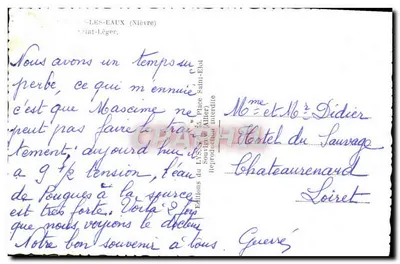 -LES-EAUX (Nièvre)
Saint-Léger.
Nous avons un temps su
perbe, ce qui m'ennuie
c'est que Maxime ne
peut pas faire le trai
tement, aujourd'hui il
a 9 1/2 tension, l'eau
de Pougues à la source
est très forte. Voilà 2 fois
que nous voyions le docteur
Notre bon souvenir à tous. Guerré
Editions du LYS, Place Saint-Eloi
Souvigny (Allier)
Reproduction interdite
Mme et Mr Didier
Hostel du Sauvage
Chateaurenard
Loiret